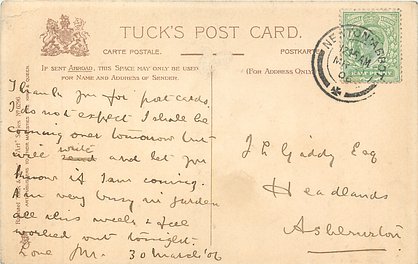 TUCK'S POST CARD.
CARTE POSTALE.
POSTKARTE
IF SENT ABROAD, THIS SPACE MAY ONLY BE USED
FOR NAME AND ADDRESS OF SENDER.
(FOR ADDRESS ONLY.)
NEWTON ABBOT
HALF PENNY
Thank you for postcards.
I do not expect I shall be
coming over tomorrow but
will write and let you
know if I am coming.
Am very busy in garden
all this week & feel
worked out tonight.
Love 30 March '06
J L Giddy Esq
Headlands
Ashburton